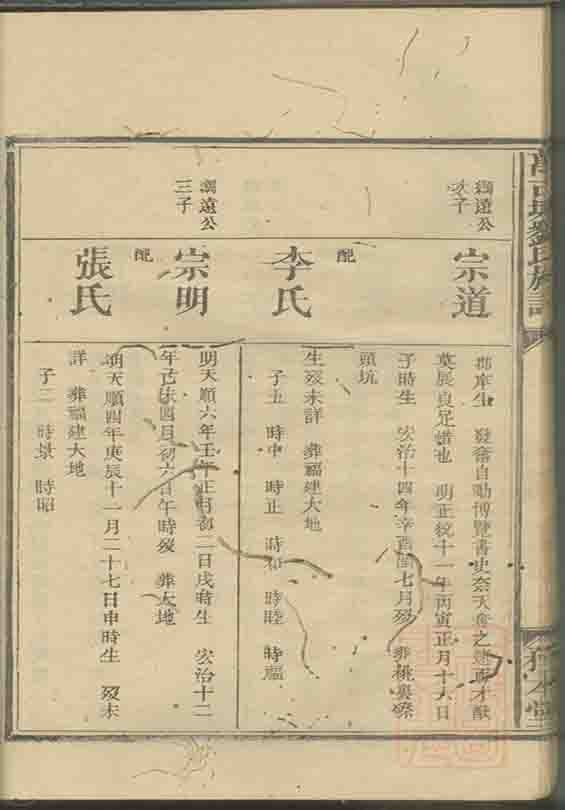 淵遠公
次子
宗道
郡庠生 發奮自勵博覽書史奈天奪之速而才猷
莫展良足惜也 明正統十一年丙寅正月十六日
子時生 宏治十四年辛酉閏七月歿 葬桃裏
頭坑
配
李氏
生歿未詳 葬福建大地
子五 時中 時正 時和 時睦 時福
淵遠公
三子
宗明
明天順六年壬午正月初二日戌時生 宏治十二
年己未四月初六日午時歿 葬大地
配
張氏
明天順四年庚辰十一月二十七日申時生 歿未
詳 葬福建大地
子二 時景 時昭
劉氏族譜